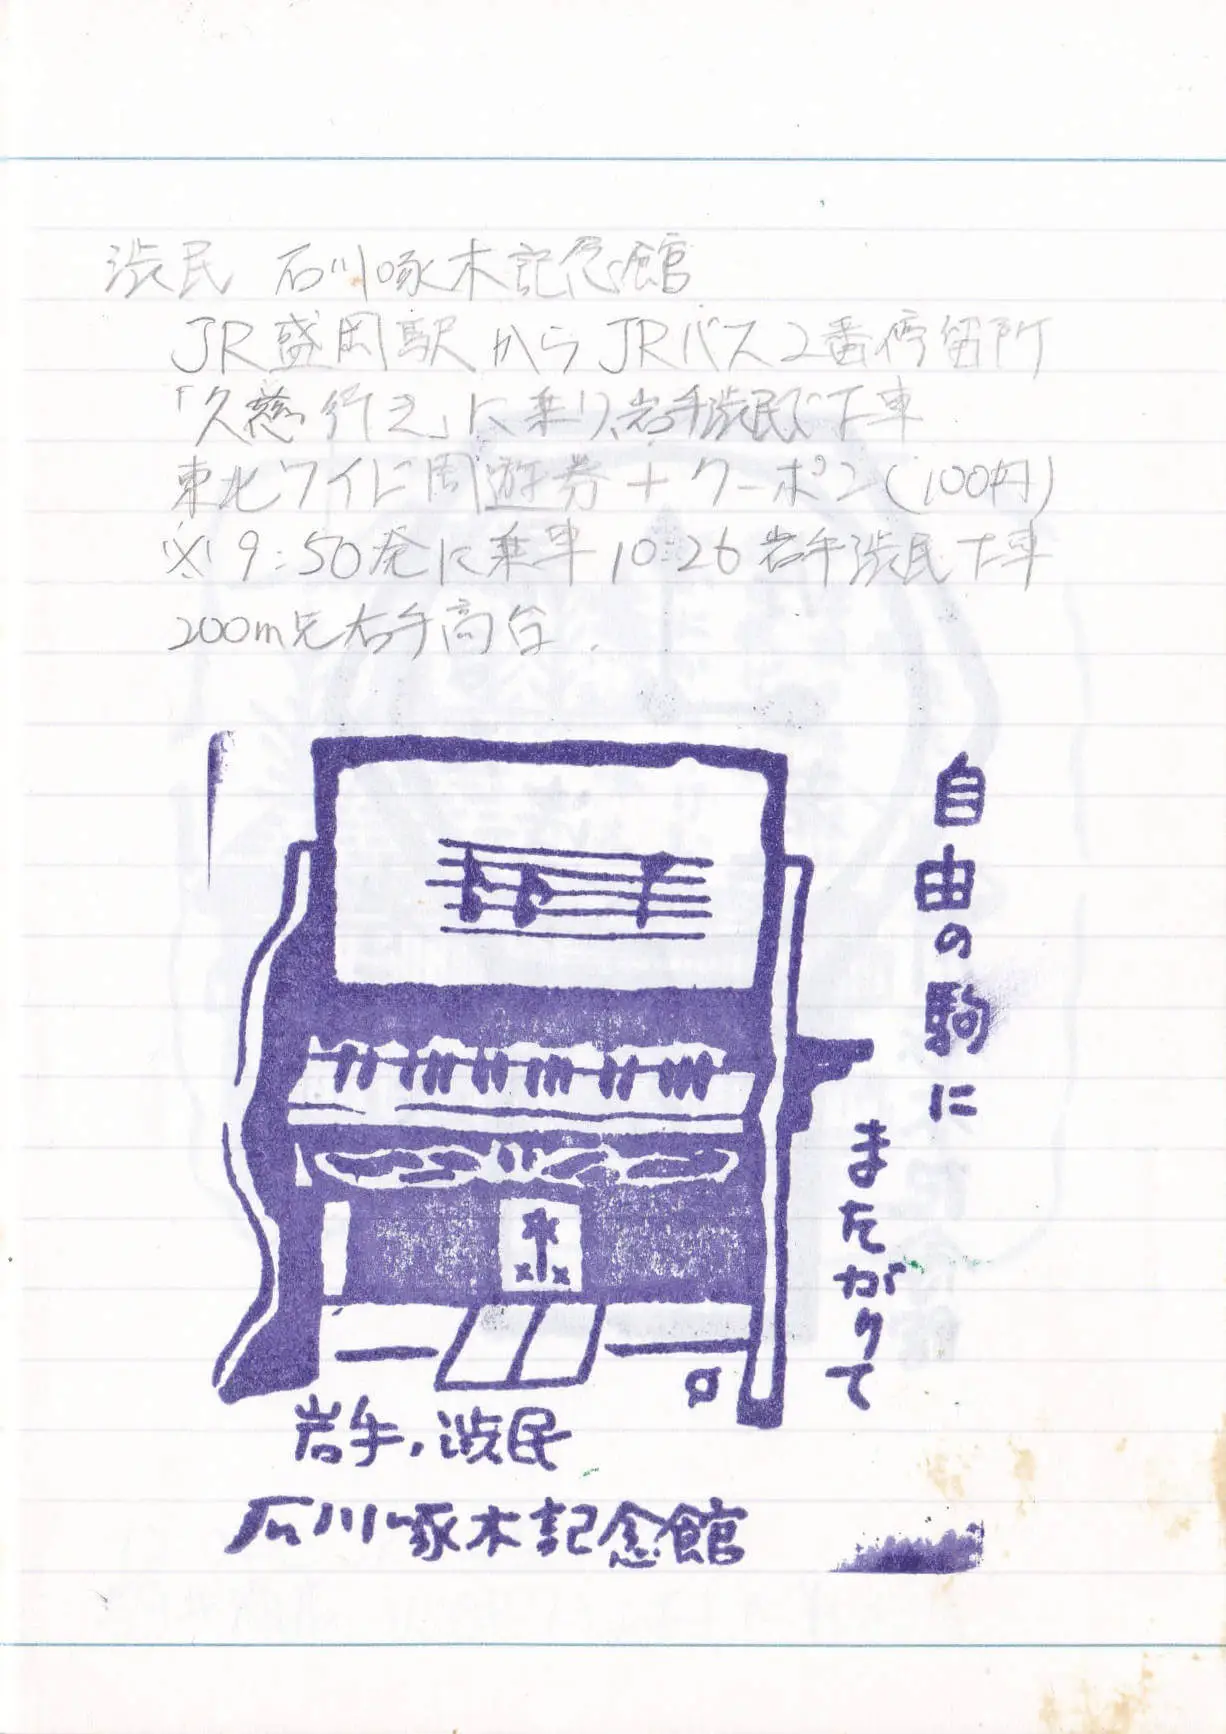 渋民 石川啄木記念館
JR盛岡駅からJRバス2番停留所
「久慈行き」に乗り、岩手渋民で下車
東北ワイド周遊券+クーポン(100円)
※ 9:50発に乗車 10:26岩手渋民下車
200m先右手高台
自由の駒に
またがりて
岩手,渋民
石川啄木記念館